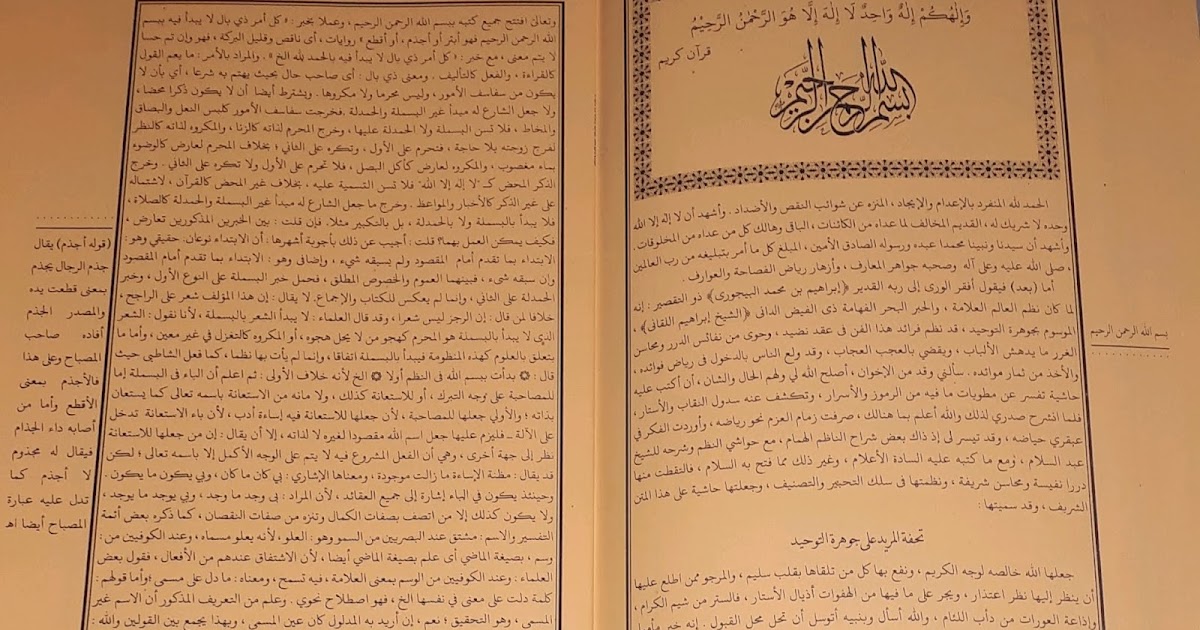 وَإِلٰهُكُمْ إِلٰهٌ وَاحِدٌ لَا إِلٰهَ إِلَّا هُوَ الرَّحْمٰنُ الرَّحِيْمُ
قرآن كريم
بسم الله الرحمن الرحيم
الحمد لله المنفرد بالإعدام والإيجاد ، المنزه عن شوائب النقص والأضداد . وأشهد أن لا إله إلا الله
وحده لا شريك له ، القديم المخالف لما عداه من الكائنات ، الباقى وهالك كل من عداه من المخلوقات.
وأشهد أن سيدنا ونبينا محمدا عبده ورسوله الصادق الأمين ، المبلغ كل ما أمر بتبليغه من رب العالمين
، صلى الله عليه وعلى آله وصحبه جواهر المعارف ، وأزهار رياض الفصاحة والعوارف .
أما (بعد) فيقول أفقر الورى إلى ربه القدير ﴿إبراهيم بن محمد البيجورى﴾ ذو التقصير : إنه
لما كان نظم العالم العلامة ، والحبر البحر الفهامة ذى الفيض الدانى ﴿الشيخ إبراهيم اللقانى﴾ ،
الموسوم بجوهرة التوحيد ، قد نظم فرائد هذا الفن فى عقد نضيد ، وحوى من نفائس الدرر ومحاسن
الغرر ما يدهش الألباب ، ويقضي بالعجب العجاب ، وقد ولع الناس بالدخول فى رياض فوائده ،
والأخذ من ثمار موائده . سألني وقد من الإخوان ، أصلح الله لي ولهم الحال والشان ، أن أكتب عليه
حاشية تفسر عن مطويات ما فيه من الرموز والأسرار ، وتكشف عنه سدول النقاب والأستار ،
فلما انشرح صدري لذلك والله أعلم بما هنالك ، صرفت زمام العزم نحو رياضه ، وأوردت الفكر في
عبقري حياضه ، وقد تيسر لى إذ ذاك بعض شراح الناظم الهمام ، مع حواشي النظم وشرحه للشيخ
عبد السلام ، ومع ما كتبه عليه السادة الأعلام ، وغير ذلك مما فتح به السلام ، فالتقطت منها
دررا نفيسة ومحاسن شريفة ، ونظمتها فى سلك التحبير والتصنيف ، وجعلتها حاشية على هذا المتن
الشريف ، وقد سميتها :
تحفة المريد على جوهرة التوحيد
جعلها الله خالصه لوجه الكريم ، ونفع بها كل من تلقاها بقلب سليم ، والمرجو ممن اطلع عليها
أن ينظر إليها نظر اعتذار ، ويجر على ما فيها من الهفوات أذيال الأستار ، فالستر من شيم الكرام ،
وإذاعة العورات من دأب اللئام ، والله أسأل وبنبيه أتوسل أن تحل محل القبول . إنه خير مأمول
بسم الله الرحمن الرحيم
وتعالى افتتح جميع كتبه ببسم الله الرحمن الرحيم ، وعملا بخبر : «كل أمر ذي بال لا يبدأ فيه ببسم
الله الرحمن الرحيم فهو أبتر أو أجذم ، أو أقطع» روايات ، أى ناقص وقليل البركة ، فهو وإن تم حسا
لا يتم معنى ، مع خبر : «كل أمر ذي بال لا يبدأ فيه بالحمد لله الخ» . والمراد بالأمر : ما يعم القول
كالقراءة ، والفعل كالتأليف . ومعنى ذي بال : أى صاحب حال بحيث يهتم به شرعا ، أي بأن لا
يكون من سفاسف الأمور ، وليس محرما ولا مكروها . ويشترط أيضا أن لا يكون ذكرا محضا ،
ولا جعل الشارع له مبدأ غير البسملة والحمدلة .فخرجت سفاسف الأمور كلبس النعل والبصاق
والمخاط ، فلا تسن البسملة ولا الحمدلة عليها ، وخرج المحرم لذاته كالزنا ، والمكروه لذاته كالنظر
لفرج زوجته بلا حاجة ، فتحرم على الأول ، وتكره على الثاني ؛ بخلاف المحرم لعارض كالوضوء
بماء مغصوب ، والمكروه لعارض كأكل البصل ، فلا تحرم على الأول ولا تكره على الثاني . وخرج
الذكر المحض كـ "لا إله إلا الله" فلا تسن التسمية عليه ، بخلاف غير المحض كالقرآن ، لاشتماله
على غير الذكر كالأخبار والمواعظ . وخرج ما جعل الشارع له مبدأ غير البسملة والحمدلة كالصلاة ،
فلا يبدأ بالبسملة ولا بالحمدلة ، بل بالتكبير مثلا. فإن قلت : بين الخبرين المذكورين تعارض ،
فكيف يمكن العمل بهما؟ قلت : أجيب عن ذلك بأجوبة أشهرها : أن الابتداء نوعان. حقيقي وهو :
الابتداء بما تقدم أمام المقصود ولم يسبقه شيء ، وإضافى وهو : الابتداء بما تقدم أمام المقصود
وإن سبقه شىء ، فبينهما العموم والخصوص المطلق ، فحمل خبر البسملة على النوع الأول ، وخبر
الحمدلة على الثاني ، وإنما لم يعكس للكتاب والإجماع. لا يقال : إن هذا المؤلف شعر على الراجح ،
خلافا لمن قال : إن الرجز ليس شعرا ، وقد قال العلماء : لا يبدأ الشعر بالبسملة ، لأنا نقول : الشعر
الذى لا يبدأ بالبسملة هو المحرم كهجو من لا يحل هجوه ، أو المكروه كالتغزل في غير معين ، وأما ما
يتعلق بالعلوم كهذه المنظومة فيبدأ بالبسملة اتفاقا ، وإنما لم يأت بها نظما ، كما فعل الشاطبي حيث
قال : ۞ بدأت ببسم الله فى النظم أولا ۞ الخ لأنه خلاف الأولى : ثم اعلم أن الباء فى البسملة إما
للمصاحبة على وجه التبرك ، أو للاستعانة كذلك ، ولا مانه من الاستعانة باسمه تعالى كما يستعان
بذاته ؛ والأولي جعلها للمصاحبة ، لأن جعلها للاستعانة فيه إساءة أدب ، لأن باء الاستعانة تدخل
على الآلة – فليزم عليها جعل اسم الله مقصودا لغيره لا لذاته ، إلا أن يقال : إن من جعلها للاستعانة
نظر إلى جهة أخرى ، وهي أن الفعل المشروع فيه لا يتم على الوجه الأكمل إلا باسمه تعالى ؛ لكن
قد يقال : مظنة الإساءة ما زالت موجودة ، ومعناها الإشاري : بي كان ما كان ، وبي يكون ما يكون .
وحينئذ يكون في الباء إشارة إلى جميع العقائد ، لأن المراد : بى وجد ما وجد ، وبي يوجد ما يوجد ،
ولا يكون كذلك إلا من اتصف بصفات الكمال وتنزه من صفات النقصان ، كما ذكره بعض أئمة
التفسير والاسم : مشتق عند البصريين من السمو وهو : العلو ، لأنه يعلو مسماه ، وعند الكوفيين من :
وسم ، بصيغة الماضي أى علم بصيغة الماضي أيضا ، لأن الاشتقاق عندهم من الأفعال ، فقول بعض
العلماء : وعند الكوفيين من الوسم بمعنى العلامة ، فيه تسمح ، ومعناه : ما دل على مسمى ؛ وأما قولهم :
كلمة دلت على معنى في نفسها الخ ، فهو اصطلاح نحوي . وعلم من التعريف المذكور أن الاسم غير
المسمى ، وهو التحقيق ؛ نعم ، إن أريد به المدلول كان عين المسمى ، وبهذا يجمع بين القولين والله :
(قوله أجذم) يقال
جذم الرجال يجذم
بمعنى قطعت يده
والمصدر الجذم
أفاده صاحب
المصباح وعلى هذا
فالأجذم بمعنى
الأقطع وأما من
أصابه داء الجذام
فيقال له مجذوم
لا أجذم كما
تدل عليه عبارة
المصباح أيضا اهـ